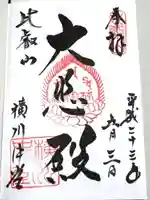 奉拝
平成二十三年
九月三日
大悲殿
比叡山
横川中堂